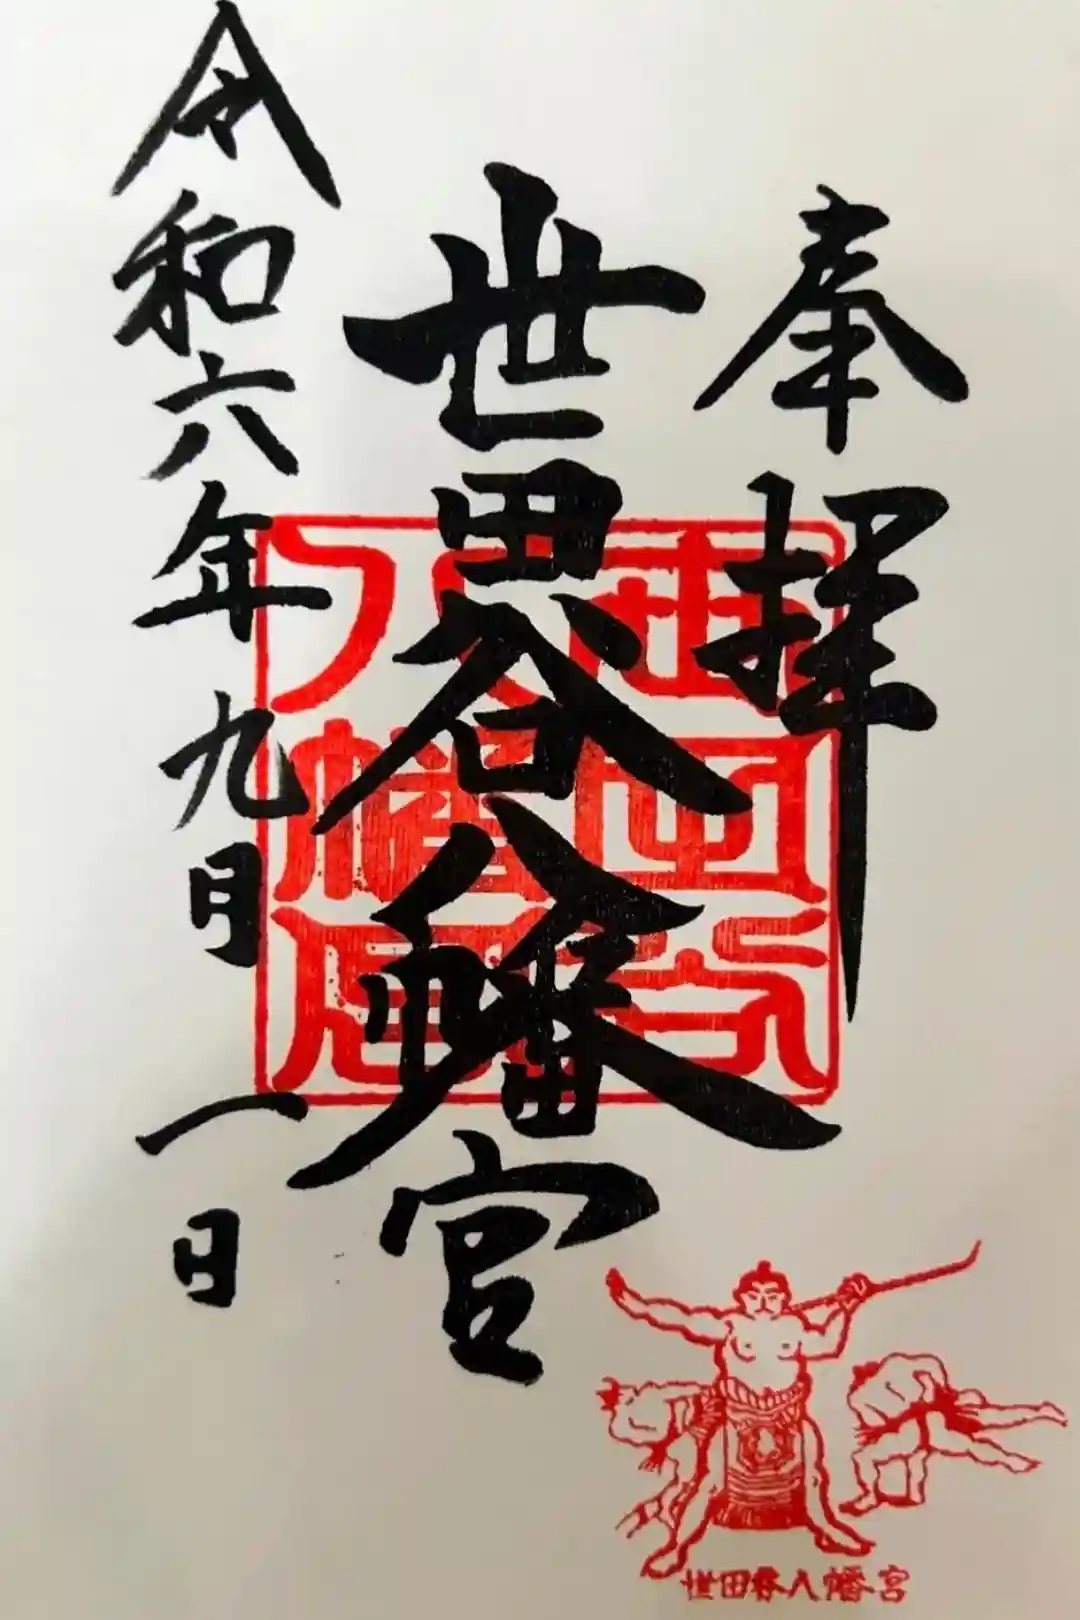 奉拝
世田谷八幡宮
令和六年九月一日
世田谷
八幡宮
世田谷八幡宮